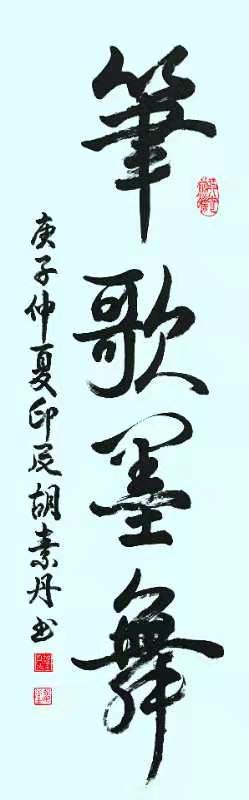 筆歌墨舞
庚子仲夏印辰胡素丹书